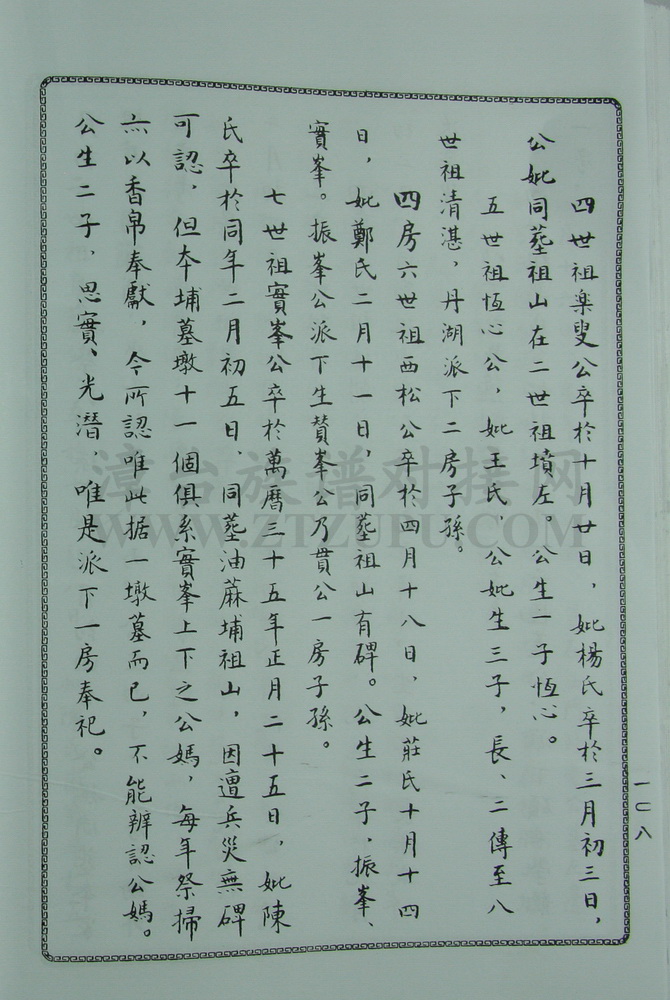 四世祖楽叟公卒於十月廿日，妣楊氏卒於三月初三日，
公妣同塟祖山在二世祖墳左。公生一子恆心。
五世祖恆心公，妣王氏，公妣生三子，長、二傳至八
世祖清湛，丹湖派下二房子孫。
四房六世祖西松公卒於四月十八日，妣莊氏十月十四
日，妣鄭氏二月十一日，同塟祖山有碑。公生二子，振峯、
實峯。振峯公派下生賛峯公乃貫公一房子孫。
七世祖實峯公卒於萬曆三十五年正月二十五日，妣陳
氏卒於同年二月初五日，同塟油蔴埔祖山，因遭兵災無碑
可認，但夲埔墓墩十一個俱系實峯上下之公媽，每年祭掃
亦以香帛奉獻，今所認唯此据一墩墓而已，不能辨認公媽。
公生二子，思實、光潛，唯是派下一房奉祀。
一〇八
漳台族谱对接网
WWW.ZTZUPU.COM